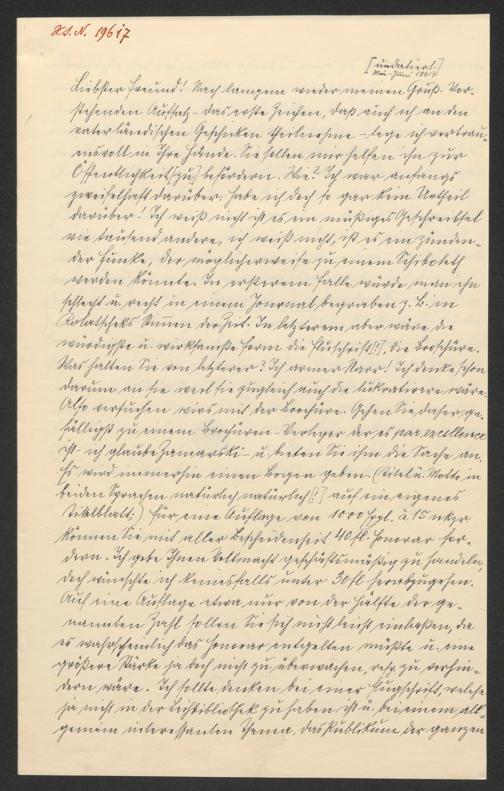 H.I.N. 19617
[undatiert.]
Mai-Juni 1861
Liebster Freund! Nach langem wieder meinen Gruß. Vor-
stehenden Aufsatz – das erste Zeichen, daß auch ich an den
vaterländischen Geschicken theilnehme – lege ich vertrau-
ensvoll in Ihre Hände. Sie sollen mir helfen ihn zur
Öffentlichkeit [zu] befördern. Wie? Ich war anfangs
zweifelhaft darüber. Habe ich doch so gar kein Urtheil
darüber. Ich weiß nicht ist es ein müßiges Geschreibsel
wie tausend andere, ich weiß nicht, ist es ein zünden-
der Funke, der möglicherweise zu einem Schiboleth
werden könnte. In ersterem Falle würde man ihn
schlecht u. recht in einem Journal begraben z. B. in
Kolatscheks Stimmen der Zeit. In letzterem aber wäre die
würdigste u. wirksamste Form die Flutschrift [!], die Broschüre.
Was halten Sie von letzterer? Ich armer Narr! Ich denke schon
darum an sie weil sie zugleich auch die lukrativere wäre.
Also versuchen wirs mit der Brochüre. Gehen Sie daher ge-
fälligst zu einem Brochüren-Verleger der es par excellence
ist – ich glaube Zamarski – u. bieten Sie ihm die Sache an.
Es wird immerhin einen Bogen geben. (Titel u. Motto in
beiden Sprachen natürlich natürlich [!] auf ein eigenes
Titelblatt.) Für eine Auflage von 1000 Expl. à 15 nkzr
können Sie mit aller Bescheidenheit 40 fl Honorar for-
dern. Ich gebe Ihnen Vollmacht geschäftsmäßig zu handeln,
doch wünschte ich keinesfalls unter 30 fl herabzugehen.
Auf eine Auflage etwa nur von der Hälfte der ge-
nannten Zahl sollen Sie sich nicht leicht einlaßen, da
es wahrscheinlich das Honorar entgelten müßte u. eine
größere Stärke ja doch nicht zu überwachen, resp. zu verhin-
dern wäre. Ich sollte denken bei einer Flugschrift, welche
ja nicht in der Leihbibliothek zu haben ist u. bei einem all-
gemein interessanten Thema, das Publikum der ganzen